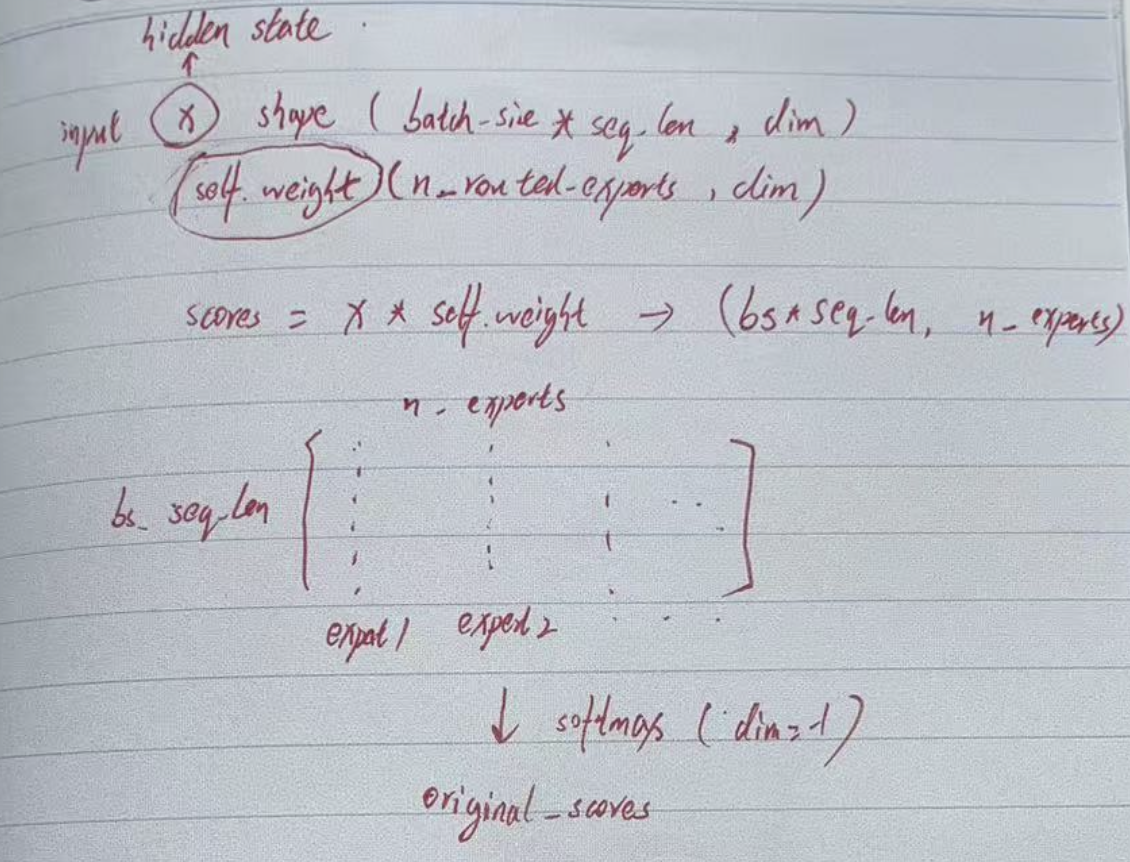 hidden state
↑
input x shape (batch-size * seq-len, dim)
self.weight (n_routed-experts, dim)
scores = x * self.weight → (bs*seq-len, n_experts)
n_experts
bs_seq-len
expert1 expert2 . . .
↓ softmax (dim=-1)
original_scores